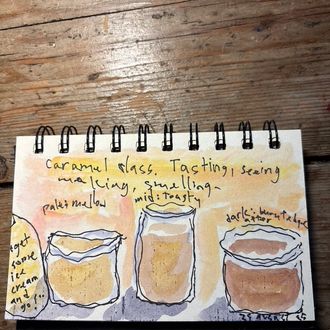 caramel class. Tasting, seeing
making, smelling.
pale: mellow
mid: toasty
dark:
get
some
ice
cream
and
go!
25 AUGUST 25